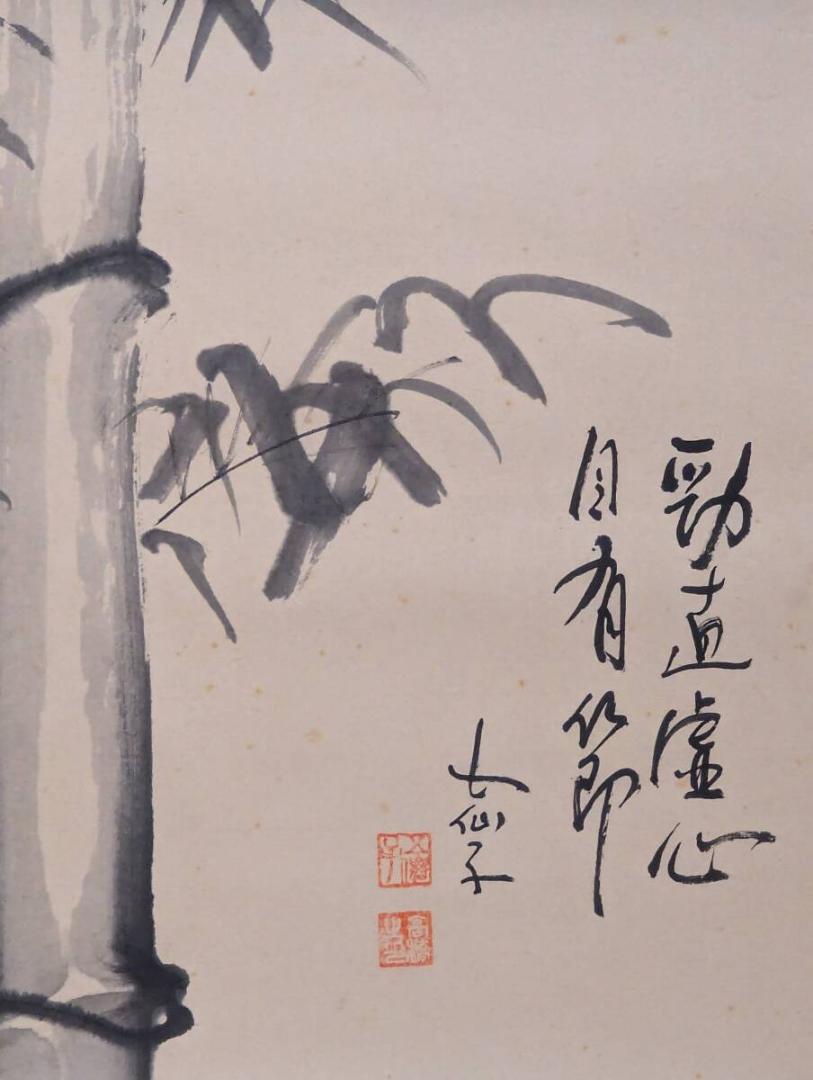 勁直虚心
自有節
仙子
高橋